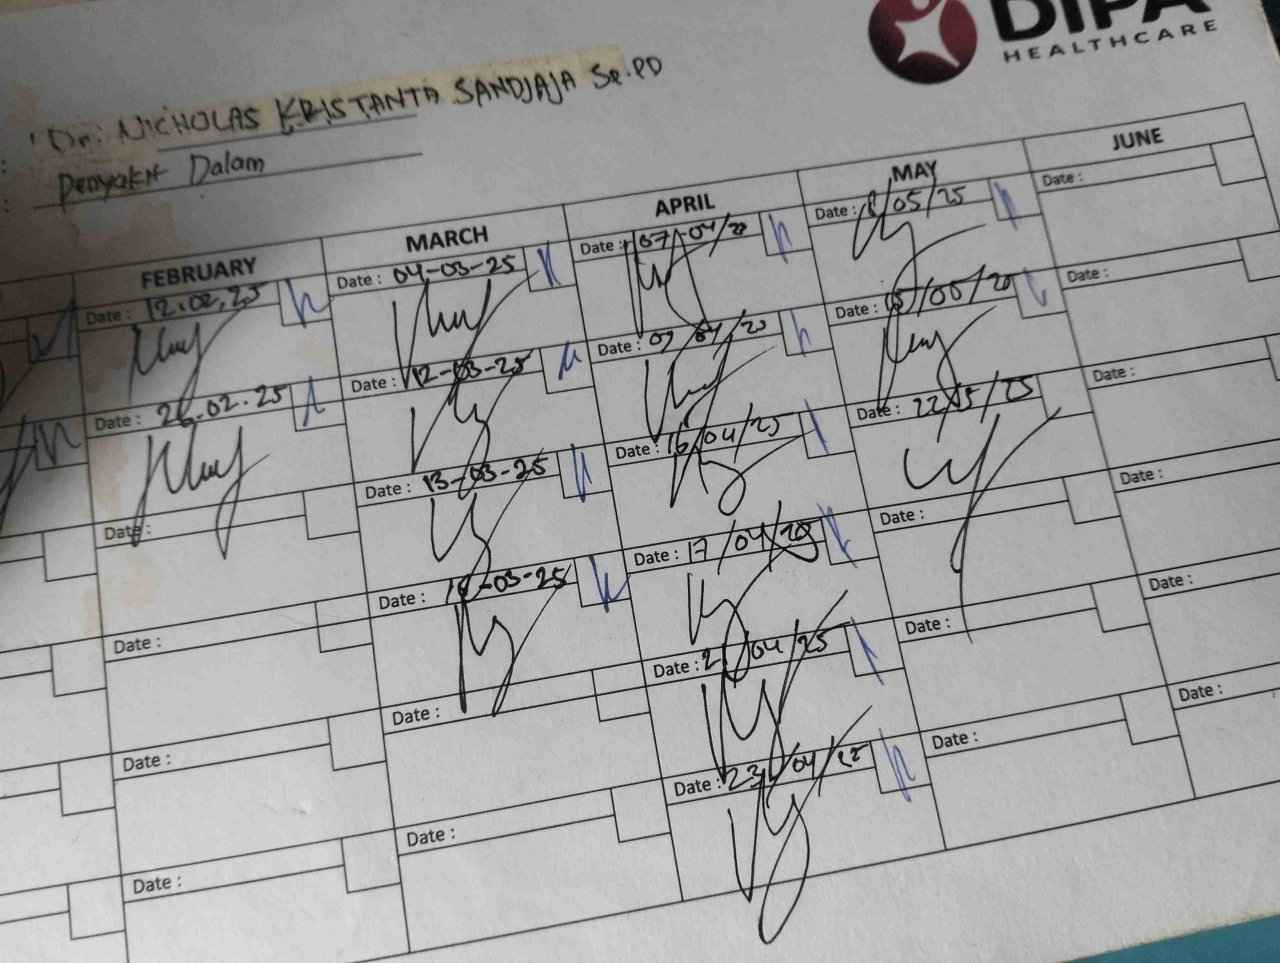 DIPA
HEALTHCARE
Dr. NICHOLAS KRISTANTA SANDJAJA Sp.PD
Penyakit Dalam
FEBRUARY MARCH APRIL MAY JUNE
Date : 12.02.25 Date : 04-03-25 Date : 07-04/25 Date : /05/25 Date :
Date : 26.02.25 Date : 12-03-25 Date : 07/04/25 Date : /05/25 Date :
Date : Date : 13-03-25 Date : 16/04/25 Date : 22/5/25 Date :
Date : Date : -03-25 Date : 17/04/25 Date : Date :
Date : Date : Date : /04/25 Date : Date :
Date : Date : Date : 23/04/25 Date : Date :